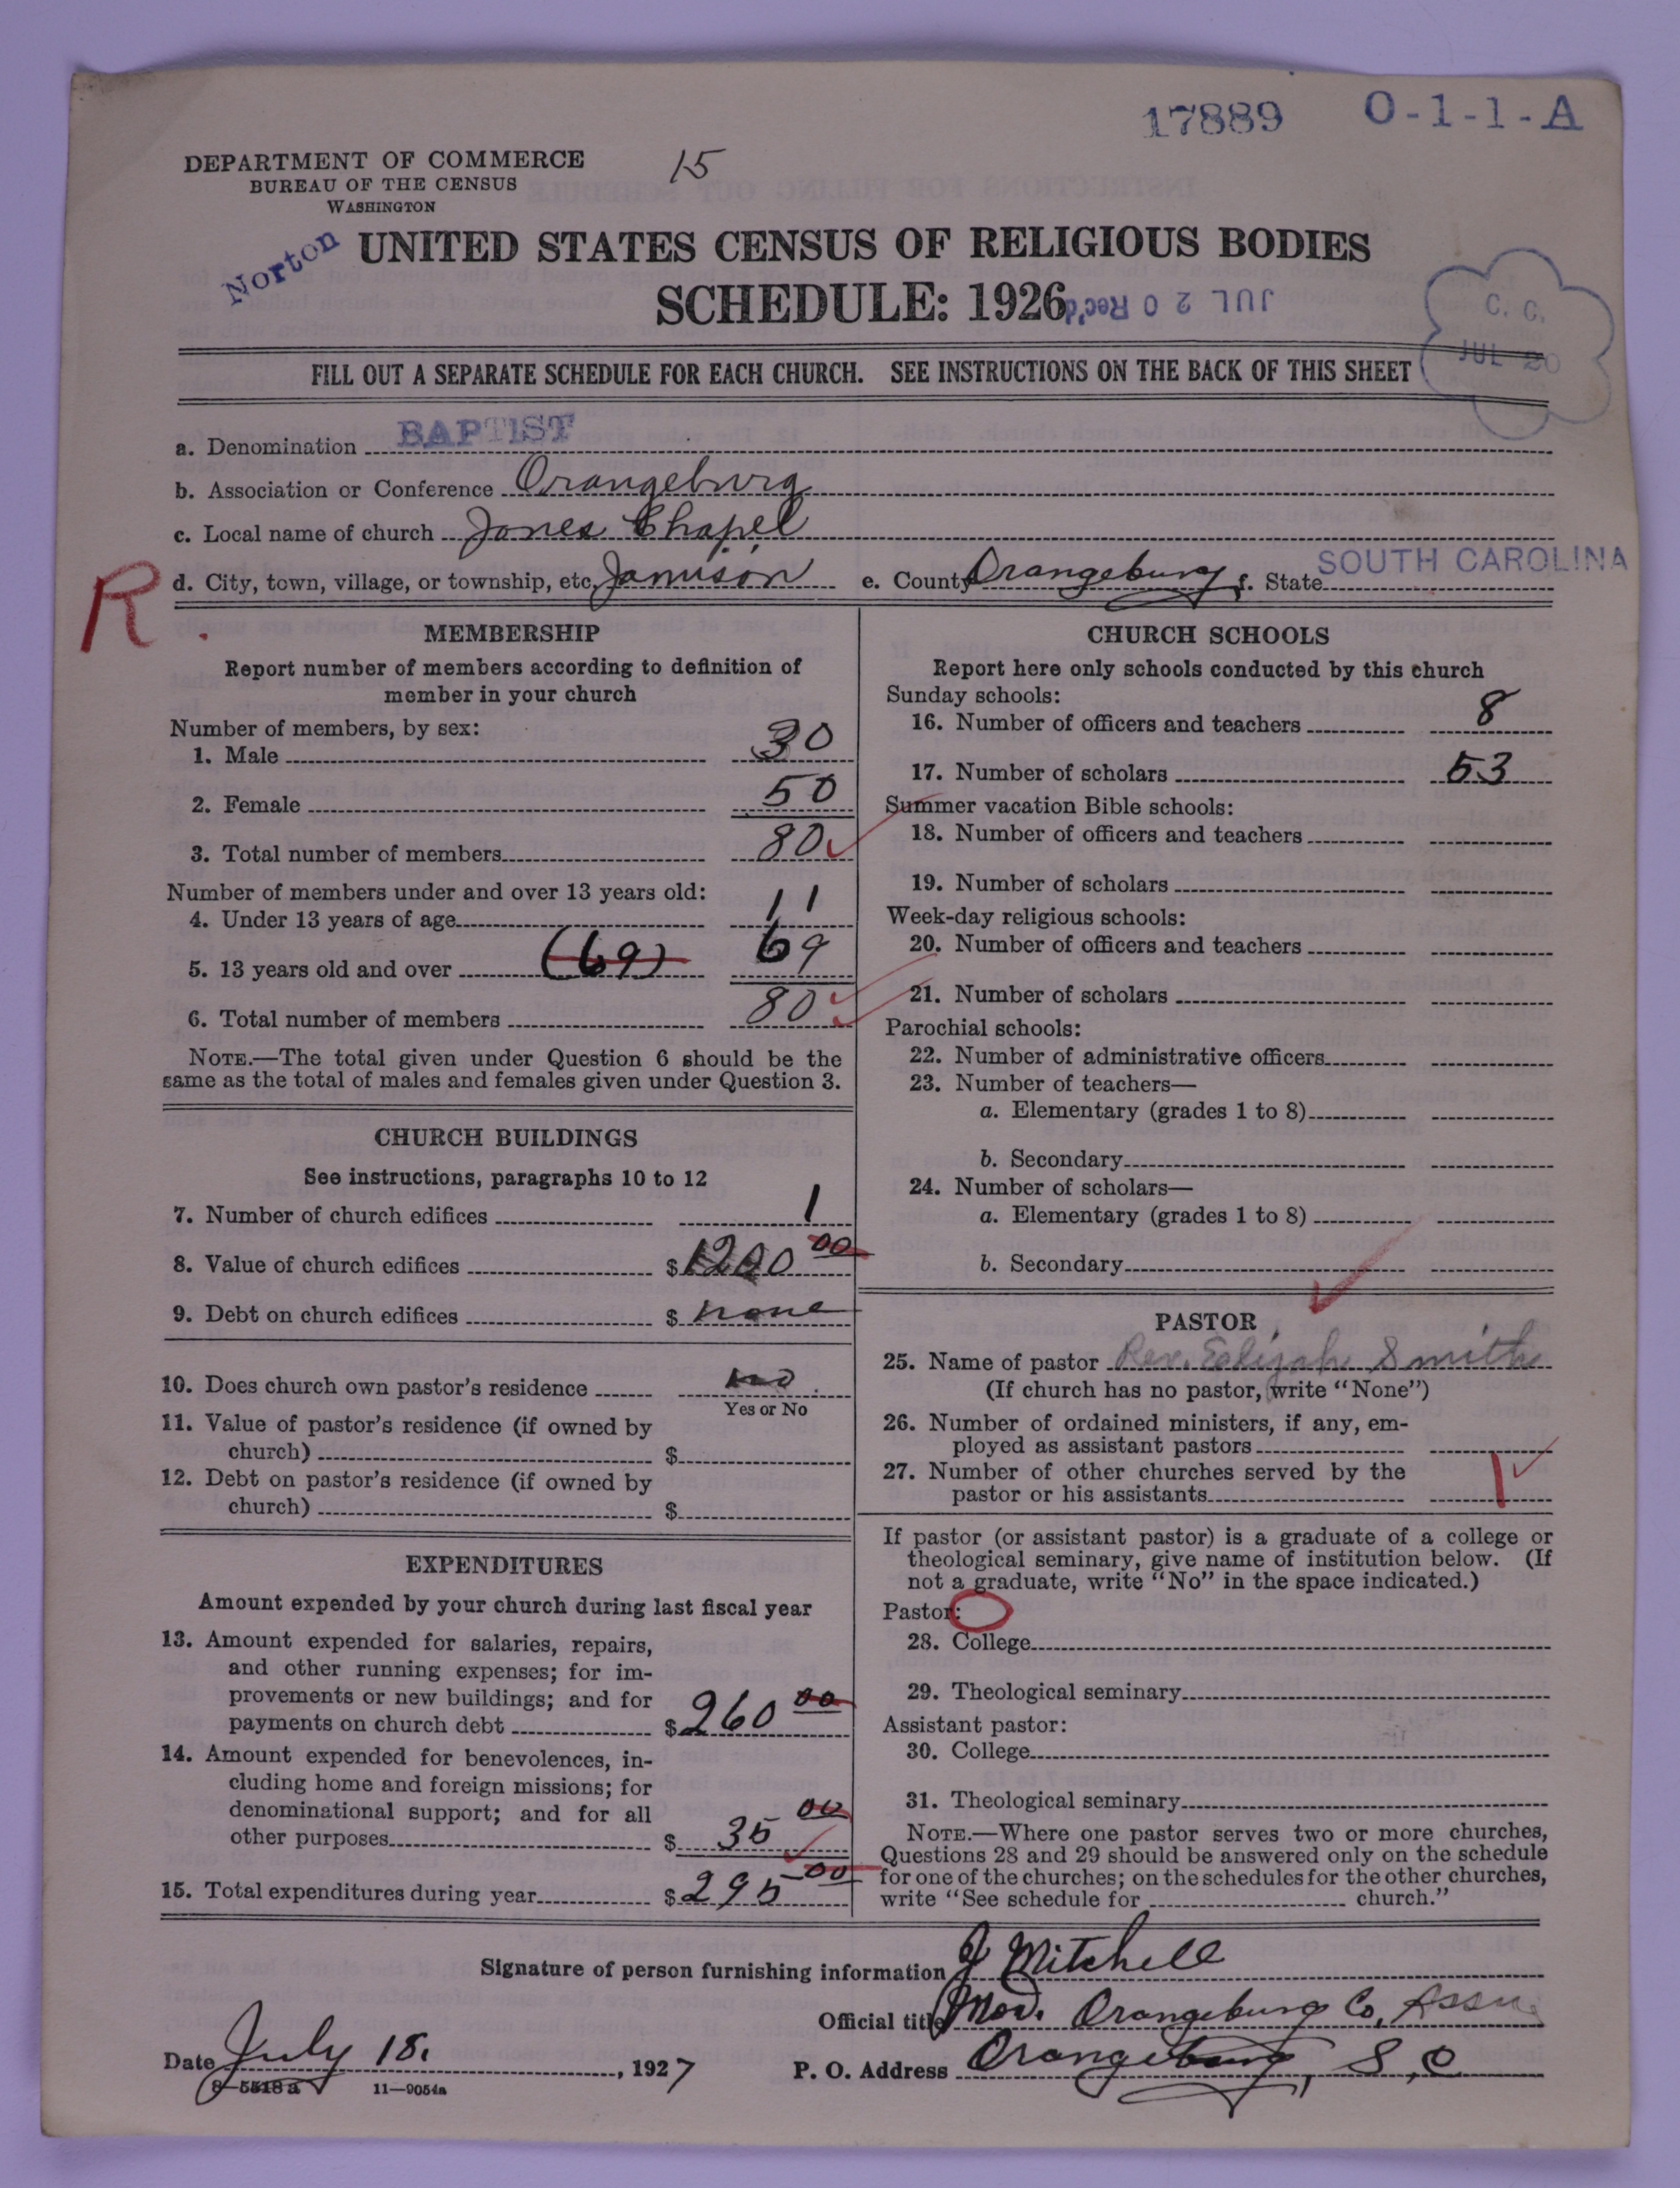 17889 O-1-1-A
DEPARTMENT OF COMMERCE
BUREAU OF THE CENSUS
WASHINGTON
15
Norton
UNITED STATES CENSUS OF RELIGIOUS BODIES
SCHEDULE: 1926
JUL 20 Rec'd
C. C.
JUL 20
FILL OUT A SEPARATE SCHEDULE FOR EACH CHURCH. SEE INSTRUCTIONS ON THE BACK OF THIS SHEET
a. Denomination BAPTIST
b. Association or Conference Orangeburg
c. Local name of church Jones Chapel
R
d. City, town, village, or township, etc. Jamison e. County Orangeburg f. State SOUTH CAROLINA
MEMBERSHIP
Report number of members according to definition of
member in your church
Number of members, by sex:
1. Male 30
2. Female 50
3. Total number of members 80
Number of members under and over 13 years old:
4. Under 13 years of age 11
5. 13 years old and over (69) 69
6. Total number of members 80
NOTE.—The total given under Question 6 should be the
same as the total of males and females given under Question 3.
CHURCH BUILDINGS
See instructions, paragraphs 10 to 12
7. Number of church edifices 1
8. Value of church edifices $1200 00
9. Debt on church edifices $ none
10. Does church own pastor's residence no
Yes or No
11. Value of pastor's residence (if owned by
church) $
12. Debt on pastor's residence (if owned by
church) $
EXPENDITURES
Amount expended by your church during last fiscal year
13. Amount expended for salaries, repairs,
and other running expenses; for im-
provements or new buildings; and for
payments on church debt $260 00
14. Amount expended for benevolences, in-
cluding home and foreign missions; for
denominational support; and for all
other purposes $ 35 00
15. Total expenditures during year $295 00
CHURCH SCHOOLS
Report here only schools conducted by this church
Sunday schools:
16. Number of officers and teachers 8
17. Number of scholars 53
Summer vacation Bible schools:
18. Number of officers and teachers
19. Number of scholars
Week-day religious schools:
20. Number of officers and teachers
21. Number of scholars
Parochial schools:
22. Number of administrative officers
23. Number of teachers—
a. Elementary (grades 1 to 8)
b. Secondary
24. Number of scholars—
a. Elementary (grades 1 to 8)
b. Secondary
PASTOR
25. Name of pastor Rev. Eslijah Smith
(If church has no pastor, write "None")
26. Number of ordained ministers, if any, em-
ployed as assistant pastors
27. Number of other churches served by the
pastor or his assistants 1
If pastor (or assistant pastor) is a graduate of a college or
theological seminary, give name of institution below. (If
not a graduate, write "No" in the space indicated.)
Pastor:
28. College
29. Theological seminary
Assistant pastor:
30. College
31. Theological seminary
NOTE.—Where one pastor serves two or more churches,
Questions 28 and 29 should be answered only on the schedule
for one of the churches; on the schedules for the other churches,
write "See schedule for church."
Signature of person furnishing information J Mitchell
Official title Mod. Orangeburg Co, Assn.
Date July 18. , 1927 P. O. Address Orangeburg, S, C
8-5518 a 11-9054a